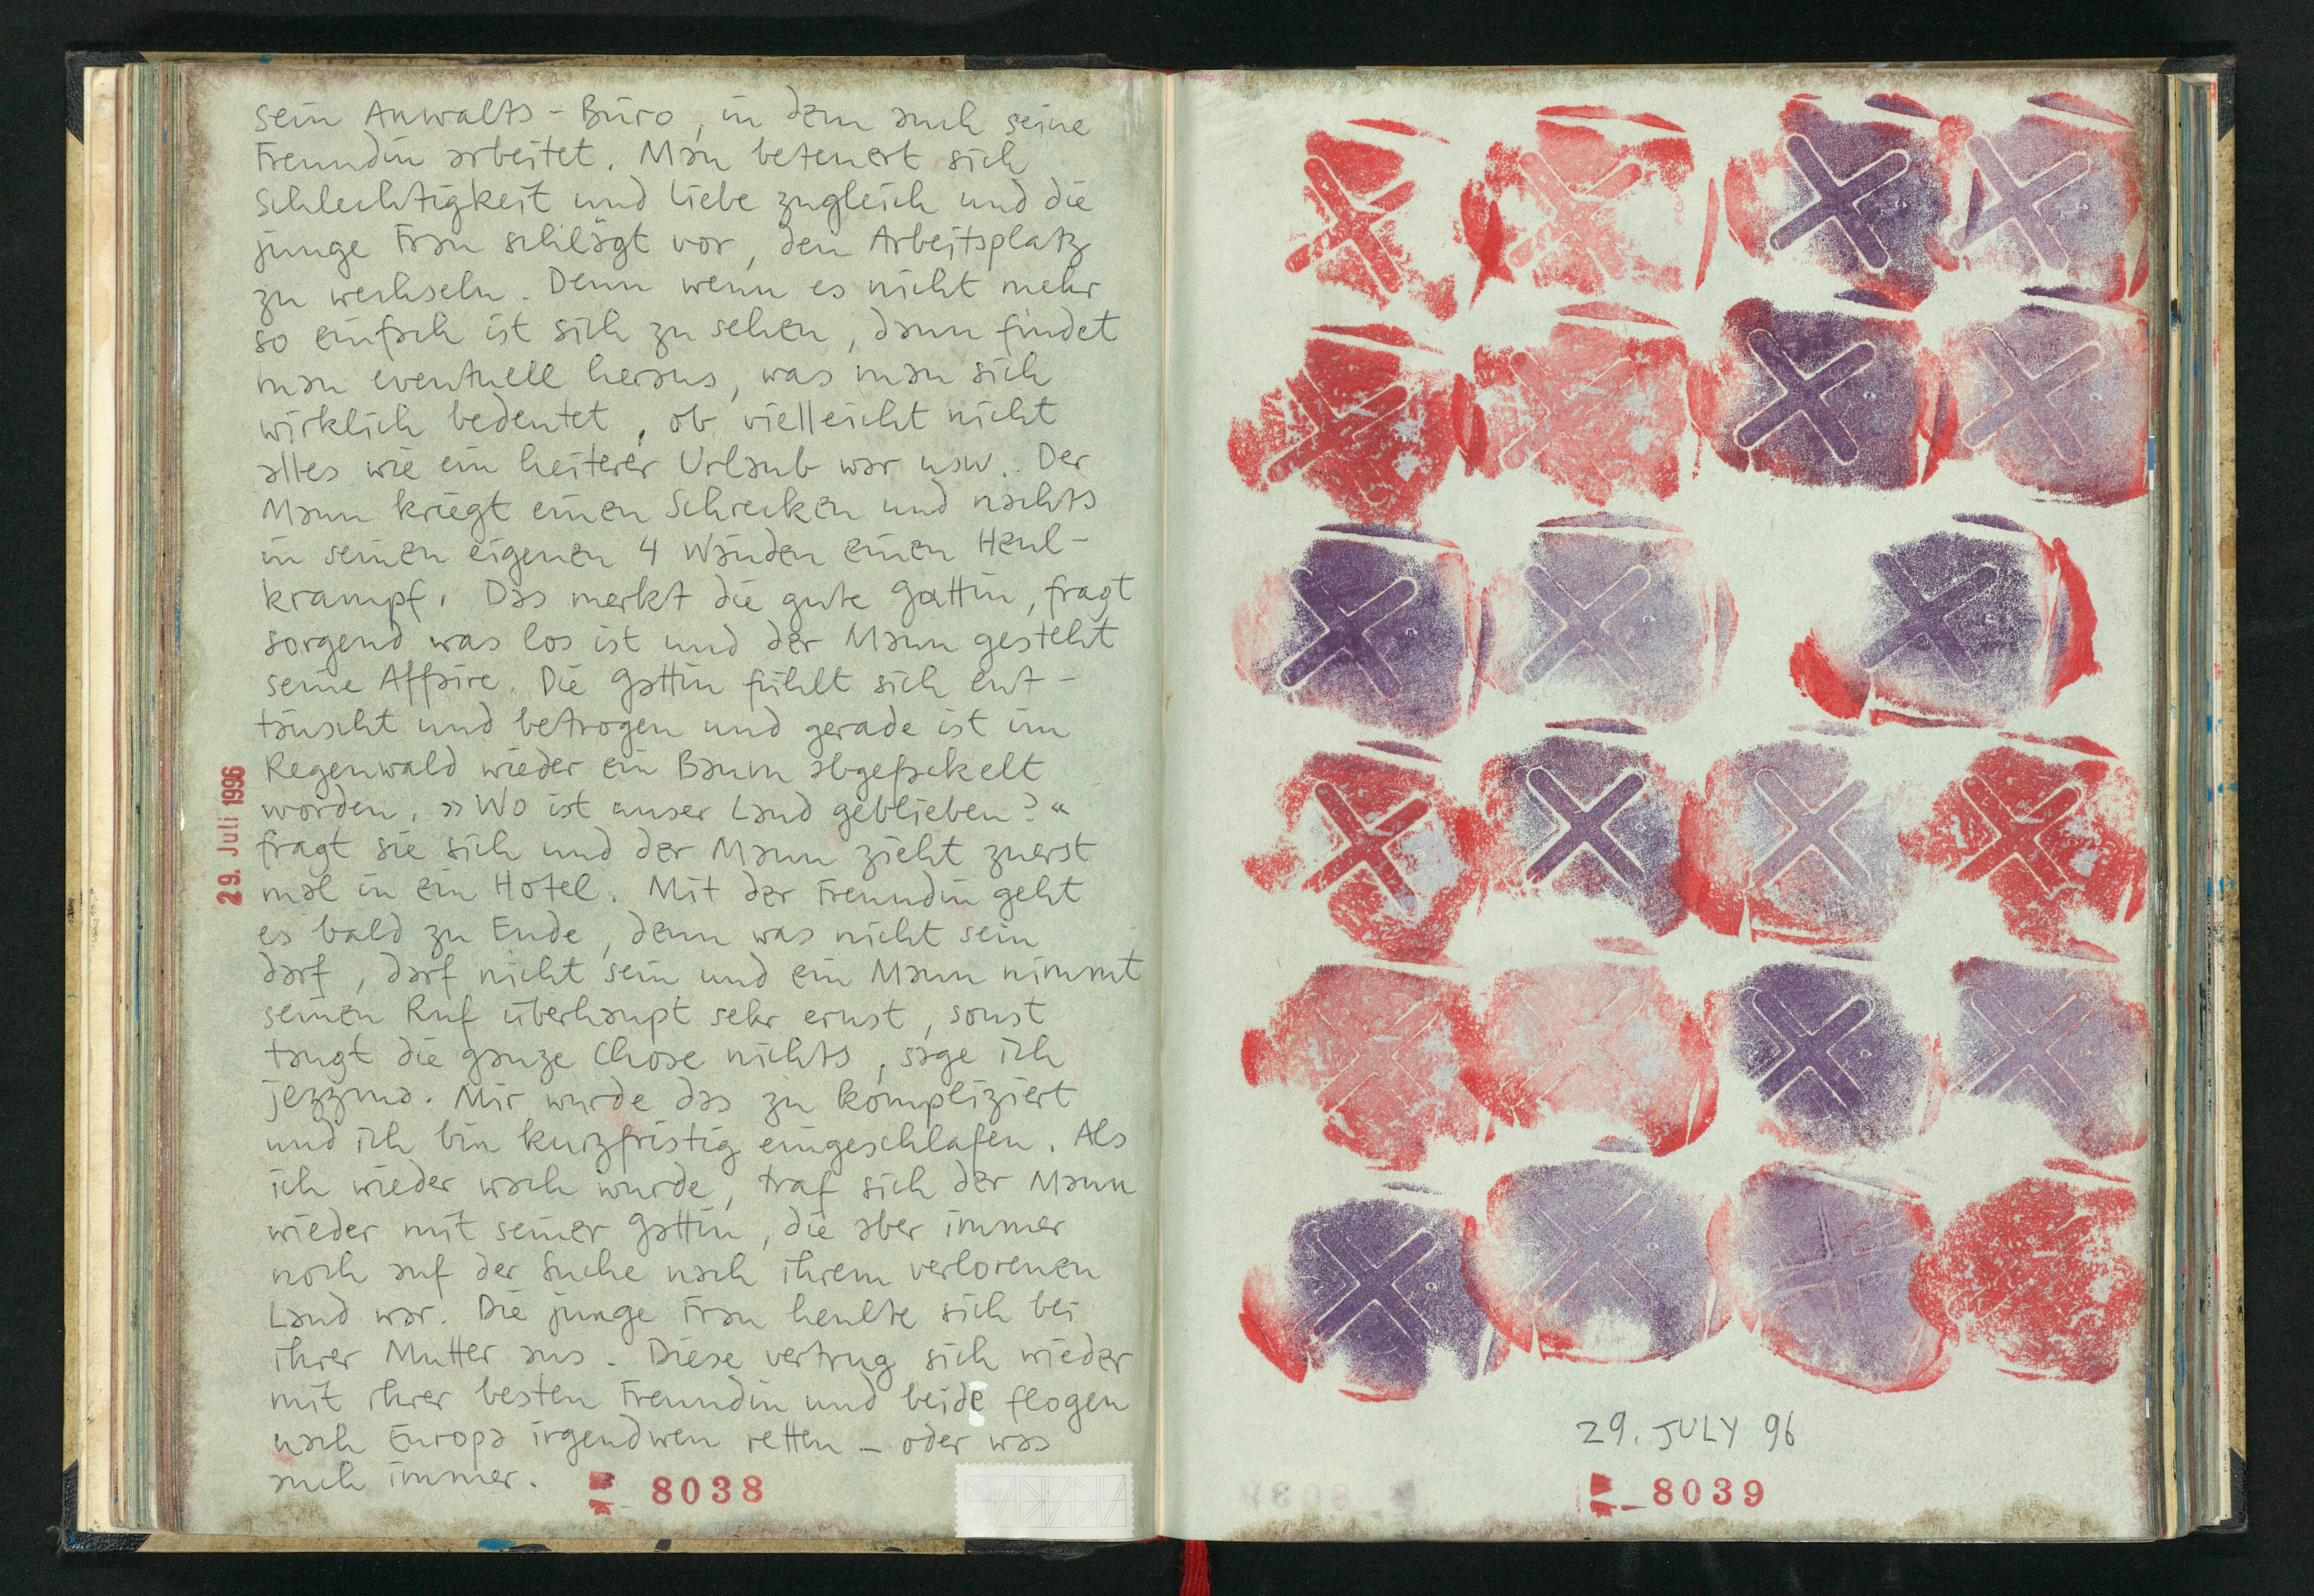 sein Anwalts-Büro, in dem auch seine
Freundin arbeitet. Man beteuert sich
Schlechtigkeit und Liebe zugleich und die
junge Frau schlägt vor, den Arbeitsplatz
zu wechseln. Denn wenn es nicht mehr
so einfach ist sich zu sehen, dann findet
man eventuell heraus, was man sich
wirklich bedeutet, ob vielleicht nicht
alles wie ein heiterer Urlaub war usw.. Der
Mann kriegt einen Schrecken und nachts
in seinen eigenen 4 Wänden einen Heul-
krampf. Das merkt die gute Gattin, fragt
sorgend was los ist und der Mann gesteht
seine Affaire. Die Gattin fühlt sich ent-
täuscht und betrogen und gerade ist im
Regenwald wieder ein Baum abgefackelt
worden. »Wo ist unser Land geblieben?«
fragt sie sich und der Mann zieht zuerst
mal in ein Hotel. Mit der Freundin geht
es bald zu Ende, denn was nicht sein
darf, darf nicht sein und ein Mann nimmt
seinen Ruf überhaupt sehr ernst, sonst
taugt die ganze Chose nichts, sage ich
jezzma. Mir wurde das zu kompliziert
und ich bin kurzfristig eingeschlafen. Als
ich wieder wach wurde, traf sich der Mann
wieder mit seiner Gattin, die aber immer
noch auf der Suche nach ihrem verlorenen
Land war. Die junge Frau heulte sich bei
ihrer Mutter aus. Diese vertrug sich wieder
mit ihrer besten Freundin und beide flogen
nach Europa irgendwen retten – oder was
auch immer.
29. Juli 1996
8038
29. JULY 96
8039